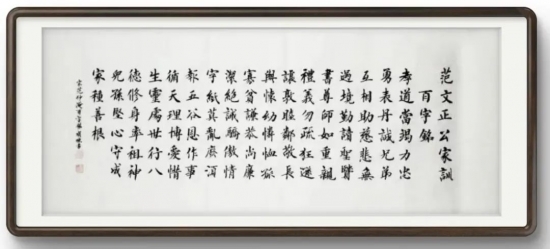 范文正公家訓
百字銘
孝道當竭力忠
勇表丹誠兄弟
互相助慈悲無
過境勤讀聖賢
書尊師如重親
禮義勿疏狂遜
讓敦睦鄰敬長
與懷幼憐恤孤
寡貧謙恭尚廉
潔絕誡驕傲情
字紙莫亂廢須
報五谷恩作事
循天理博愛惜
生靈處世行八
德修身率祖神
兒孫堅心守成
家種善根
宋范仲淹百字銘